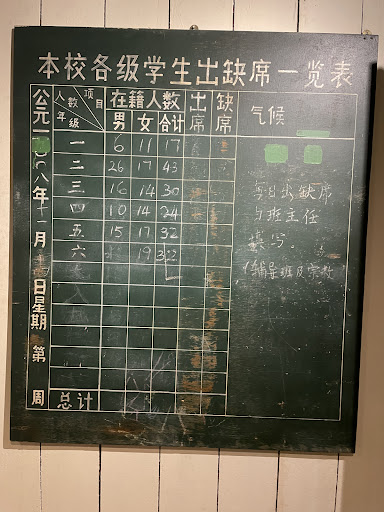 本校各级学生出缺席一览表
人数 项目 年级 在籍人数 出席 缺席 气候
男 女 合计
一 6 11 17
二 26 17 43
三 16 14 30
四 10 14 24
五 15 17 32
六 19
总计
公元一 八年十 月 日星期 第 周
每日出缺席
由班主任
填写.